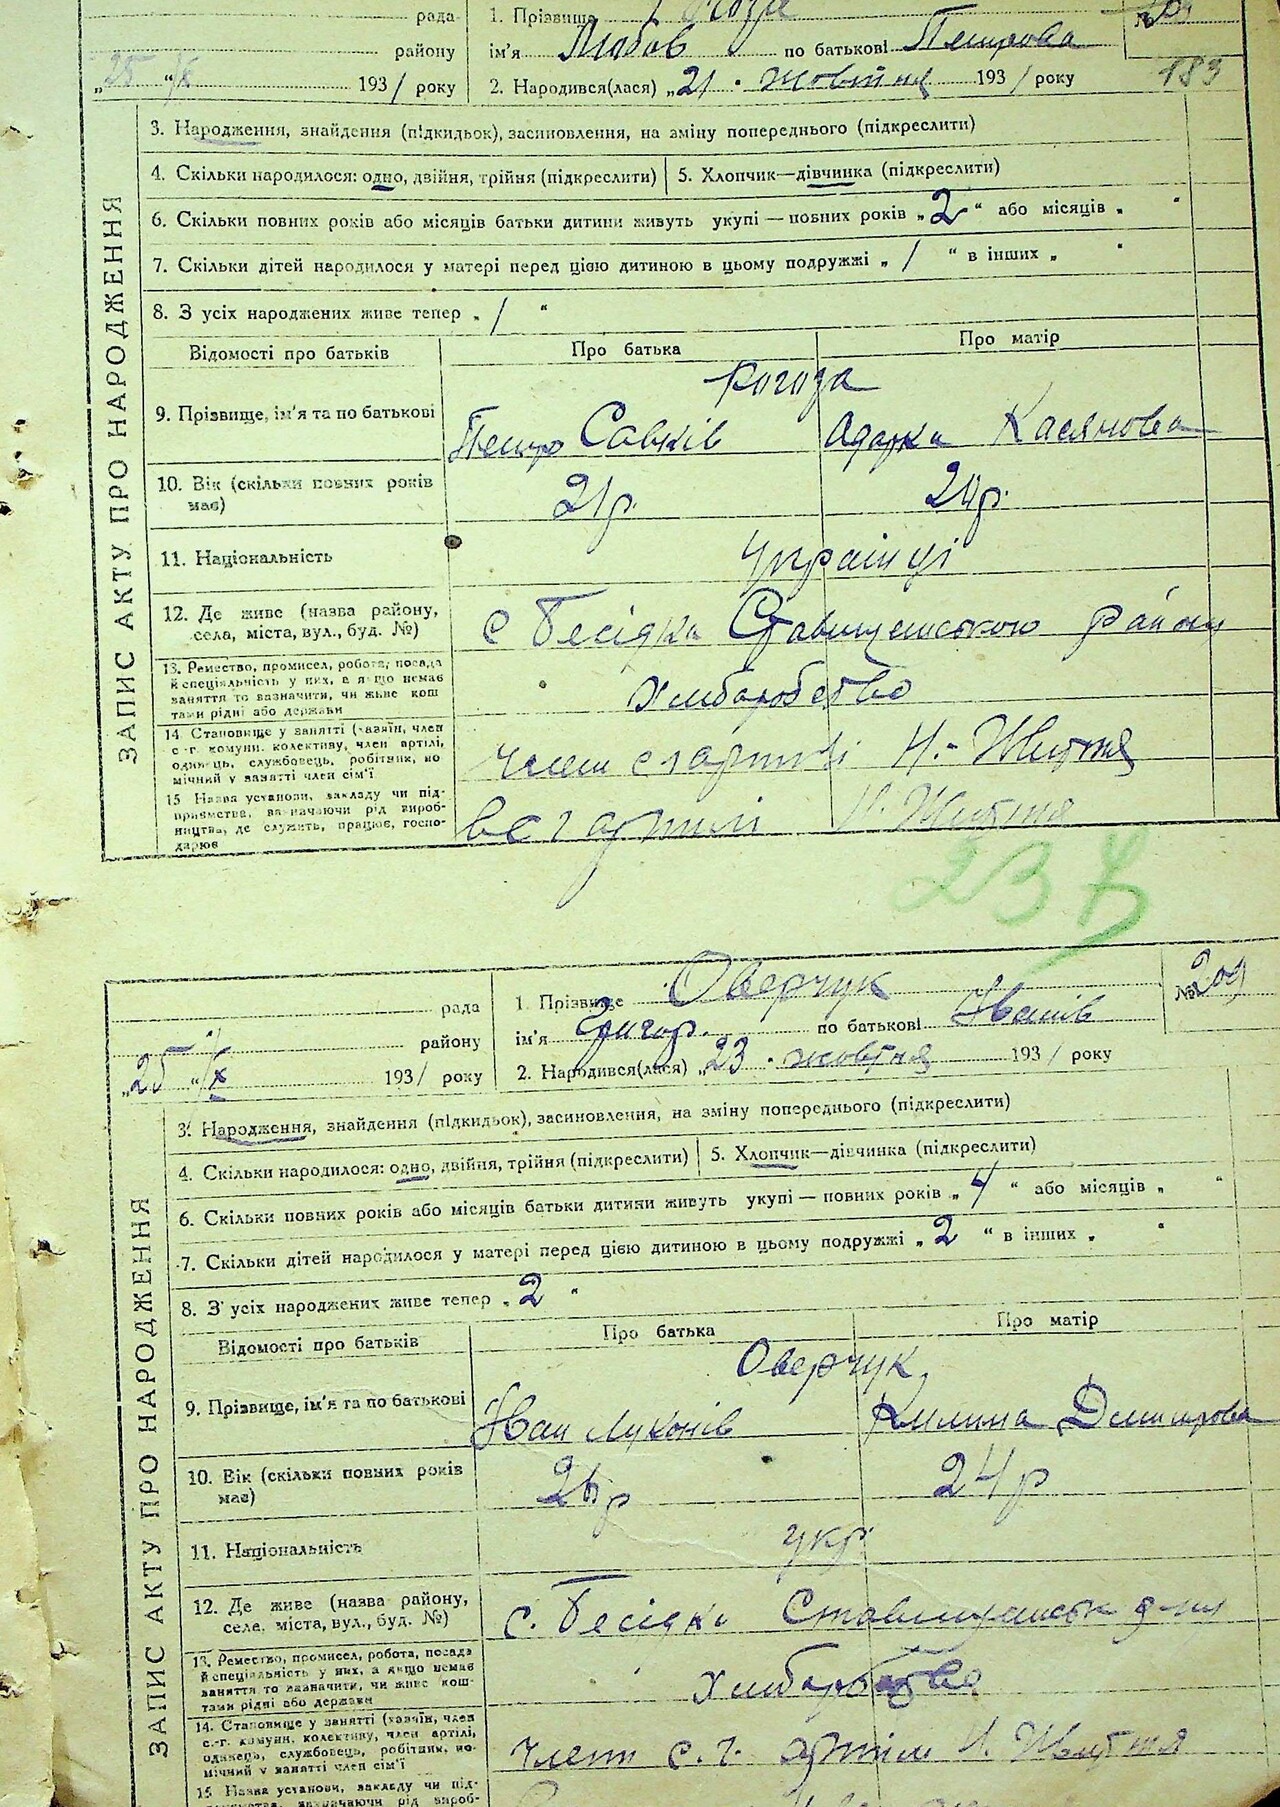 рада
1. Прізвище
району
ім'я Любов по батькові Петрова
„25 “/X 1931 року
2. Народився(лася) „21 · жовтня 1931 року
183
ЗАПИС АКТУ ПРО НАРОДЖЕННЯ
3. Народження, знайдення (підкидьок), засиновлення, на зміну попереднього (підкреслити)
4. Скільки народилося: одно, двійня, трійня (підкреслити)
5. Хлопчик—дівчинка (підкреслити)
6. Скільки повних років або місяців батьки дитини живуть укупі — повних років „2“ або місяців „ “
7. Скільки дітей народилося у матері перед цією дитиною в цьому подружжі „1 “ в інших „ “
8. З усіх народжених живе тепер „1 “
Відомості про батьків
Про батька
Про матір
Рогоза
9. Прізвище, ім'я та по батькові
Петро Савків
Одарка Касянова
10. Вік (скільки повних років має)
21р.
24р.
11. Національність
Українці
12. Де живе (назва району, села, міста, вул., буд. №)
с Бесідка Ставищенського району
13. Ремество, промисел, робота, посада
й спеціяльність у них, а якщо немає
заняття то вазначити, чи живе кош
тами рідні або держави
Хліборобство
14. Становище у занятті (хазяїн, член
с-г. комуни, колективу, член артілі,
одинець, службовець, робітник, по
мічний у занятті член сім'ї
член с г артілі Н.- Життя
15 Назва установи, закладу чи під-
приємства, вазначаючи рід вироб-
ництва, де служить, працює, госпо-
дарює
в с г артілі Н. Життя
237
рада
1. Прізвище Оверчук
№ 209
району
ім'я Григор. по батькові Іванів
„25 “/X 1931 року
2. Народився(лася) „23 · жовтня 1931 року
ЗАПИС АКТУ ПРО НАРОДЖЕННЯ
3. Народження, знайдення (підкидьок), засиновлення, на зміну попереднього (підкреслити)
4. Скільки народилося: одно, двійня, трійня (підкреслити)
5. Хлопчик—дівчинка (підкреслити)
6. Скільки повних років або місяців батьки дитини живуть укупі — повних років „4 “ або місяців „ “
7. Скільки дітей народилося у матері перед цією дитиною в цьому подружжі „2 “ в інших „ “
8. З усіх народжених живе тепер „2 “
Відомості про батьків
Про батька
Про матір
Оверчук
9. Прізвище, ім'я та по батькові
Іван Луконів
Килина Дмитрова
10. Вік (скільки повних років має)
26р
24р
11. Національність
укр
12. Де живе (назва району, села, міста, вул., буд. №)
с. Бесідка Ставищенськ р-ну
13. Ремество, промисел, робота, посада
й спеціяльність у них, а якщо немає
заняття то вазначити, чи живе кош-
тами рідні або держави
Хліборобство
14. Становище у занятті (хазяїн, член
с.-г. комуни, колективу, член артілі,
одинець, службовець, робітник, по-
мічний у занятті член сім'ї
член с. г. артіли Н. Життя
15 Назва установи, закладу чи під-
приємства, вазначаючи рід вироб-